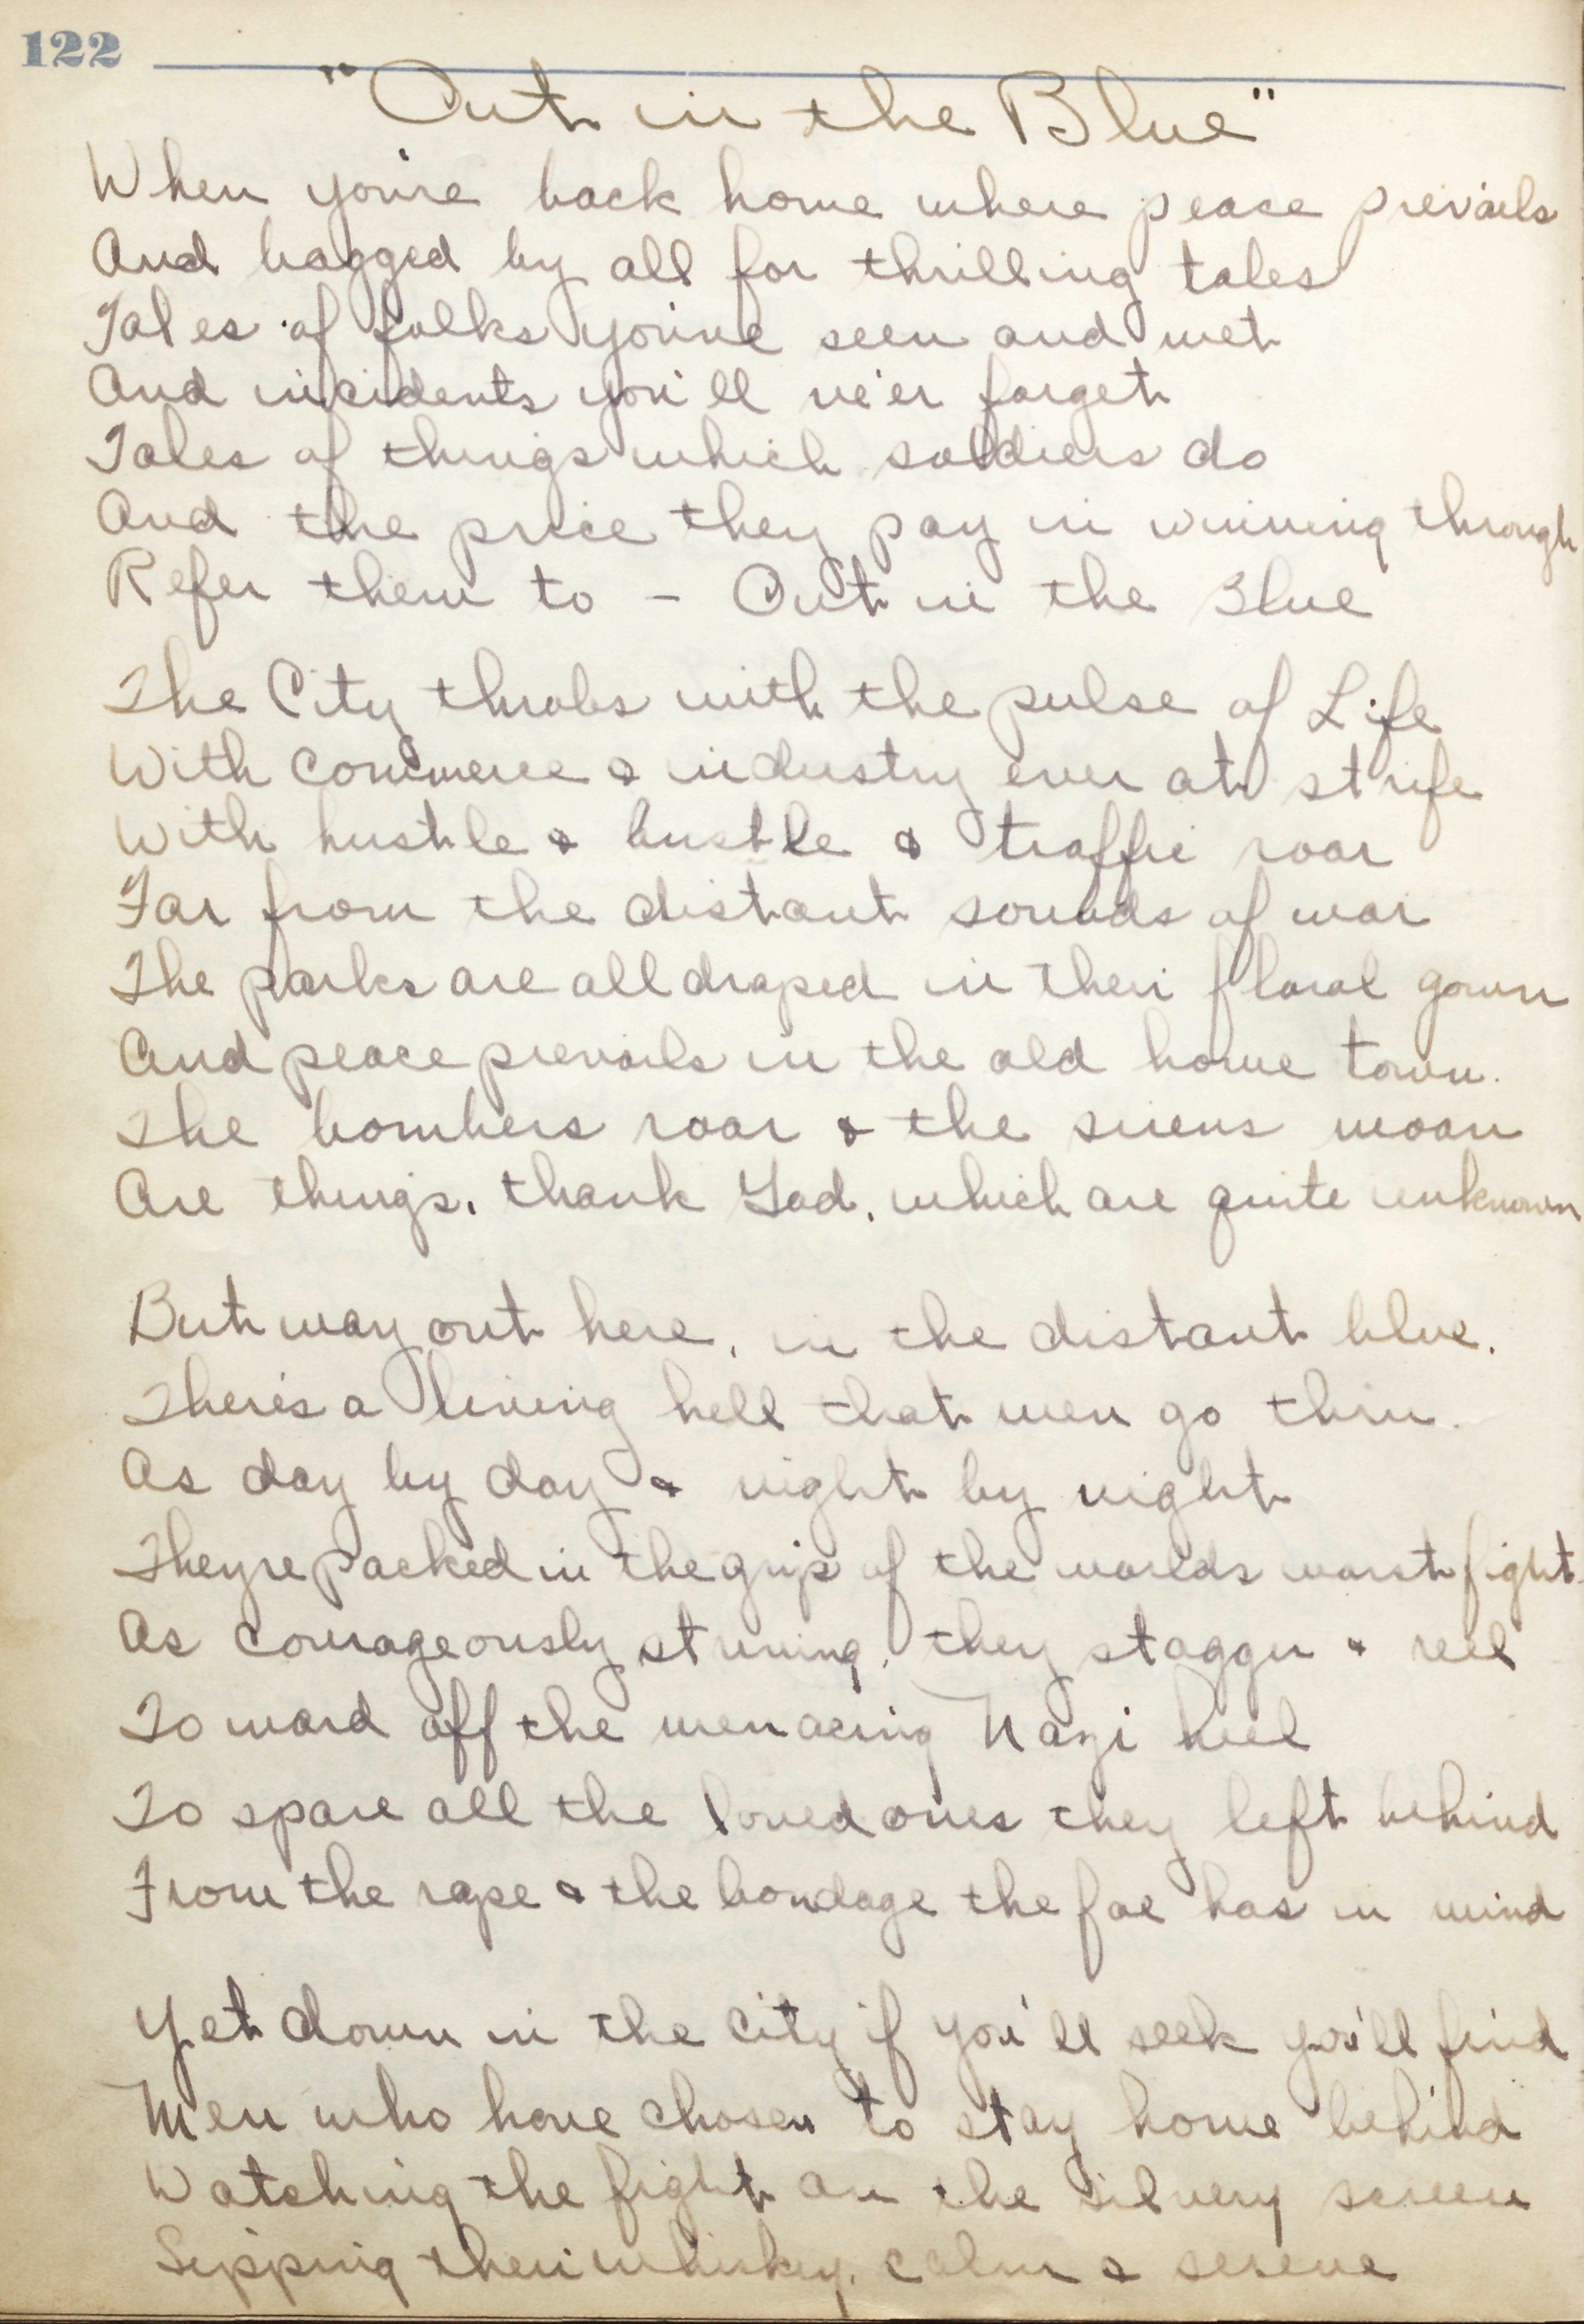 122
"Out in the Blue"
When you're back home where peace prevails
And bagged by all for thrilling tales
Tales of folks you've seen and met
And incidents you'll ne'er forget
Tales of things which soldiers do
And the price they pay in winning through
Refer them to – Out in the Blue
The City throbs with the pulse of Life
With commerce & industry ever at strife
With hustle & bustle & traffic roar
Far from the distant sounds of war
The parks are all draped in their floral gown
And peace prevails in the old home town.
The bombers roar & the sirens moan
Are things, thank God, which are quite unknown
But way out here, in the distant blue.
There's a living hell that men go thru.
As day by day & night by night
They're packed in the grip of the worlds worst fight.
As courageously striving, they stagger & reel
To ward off the menacing Nazi heel
To spare all the loved ones they left behind
From the rape & the bondage the foe has in mind
Yet down in the city if you'll seek you'll find
Men who have chosen to stay home behind
Watching the fight on the silvery screen
Sipping their whiskey, calm & serene